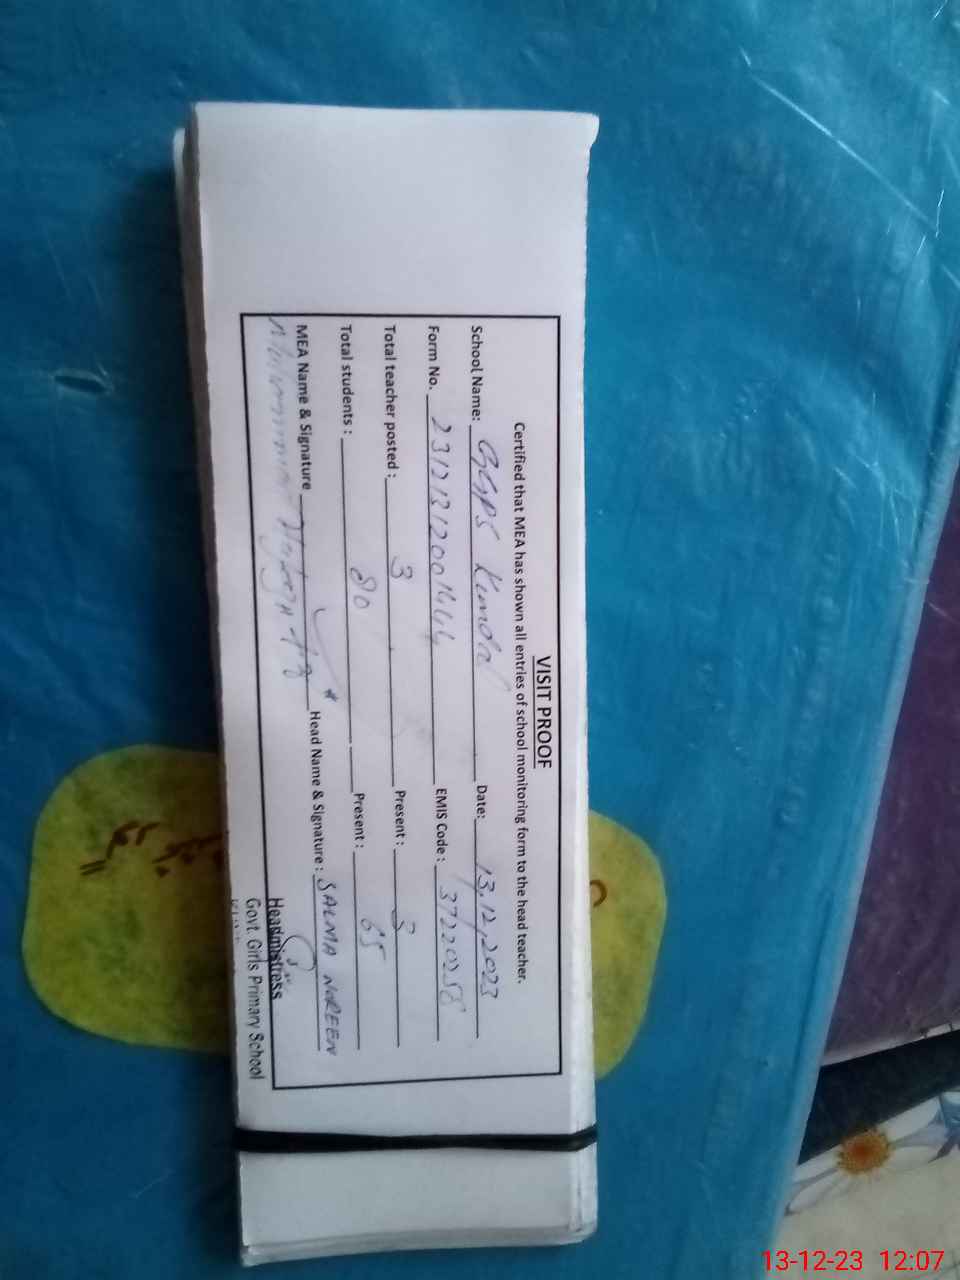 VISIT PROOF
Certified that MEA has shown all entries of school monitoring form to the head teacher.
School Name: GGPS Date: 13,12,2023
Form No. EMIS Code : 37220258
Total teacher posted : 3 Present : 3
Total students : 80 Present : 65
MEA Name & Signature Head Name & Signature : SALMA NOREEN
Headmistress
Govt. Girls Primary School
13-12-23 12:07